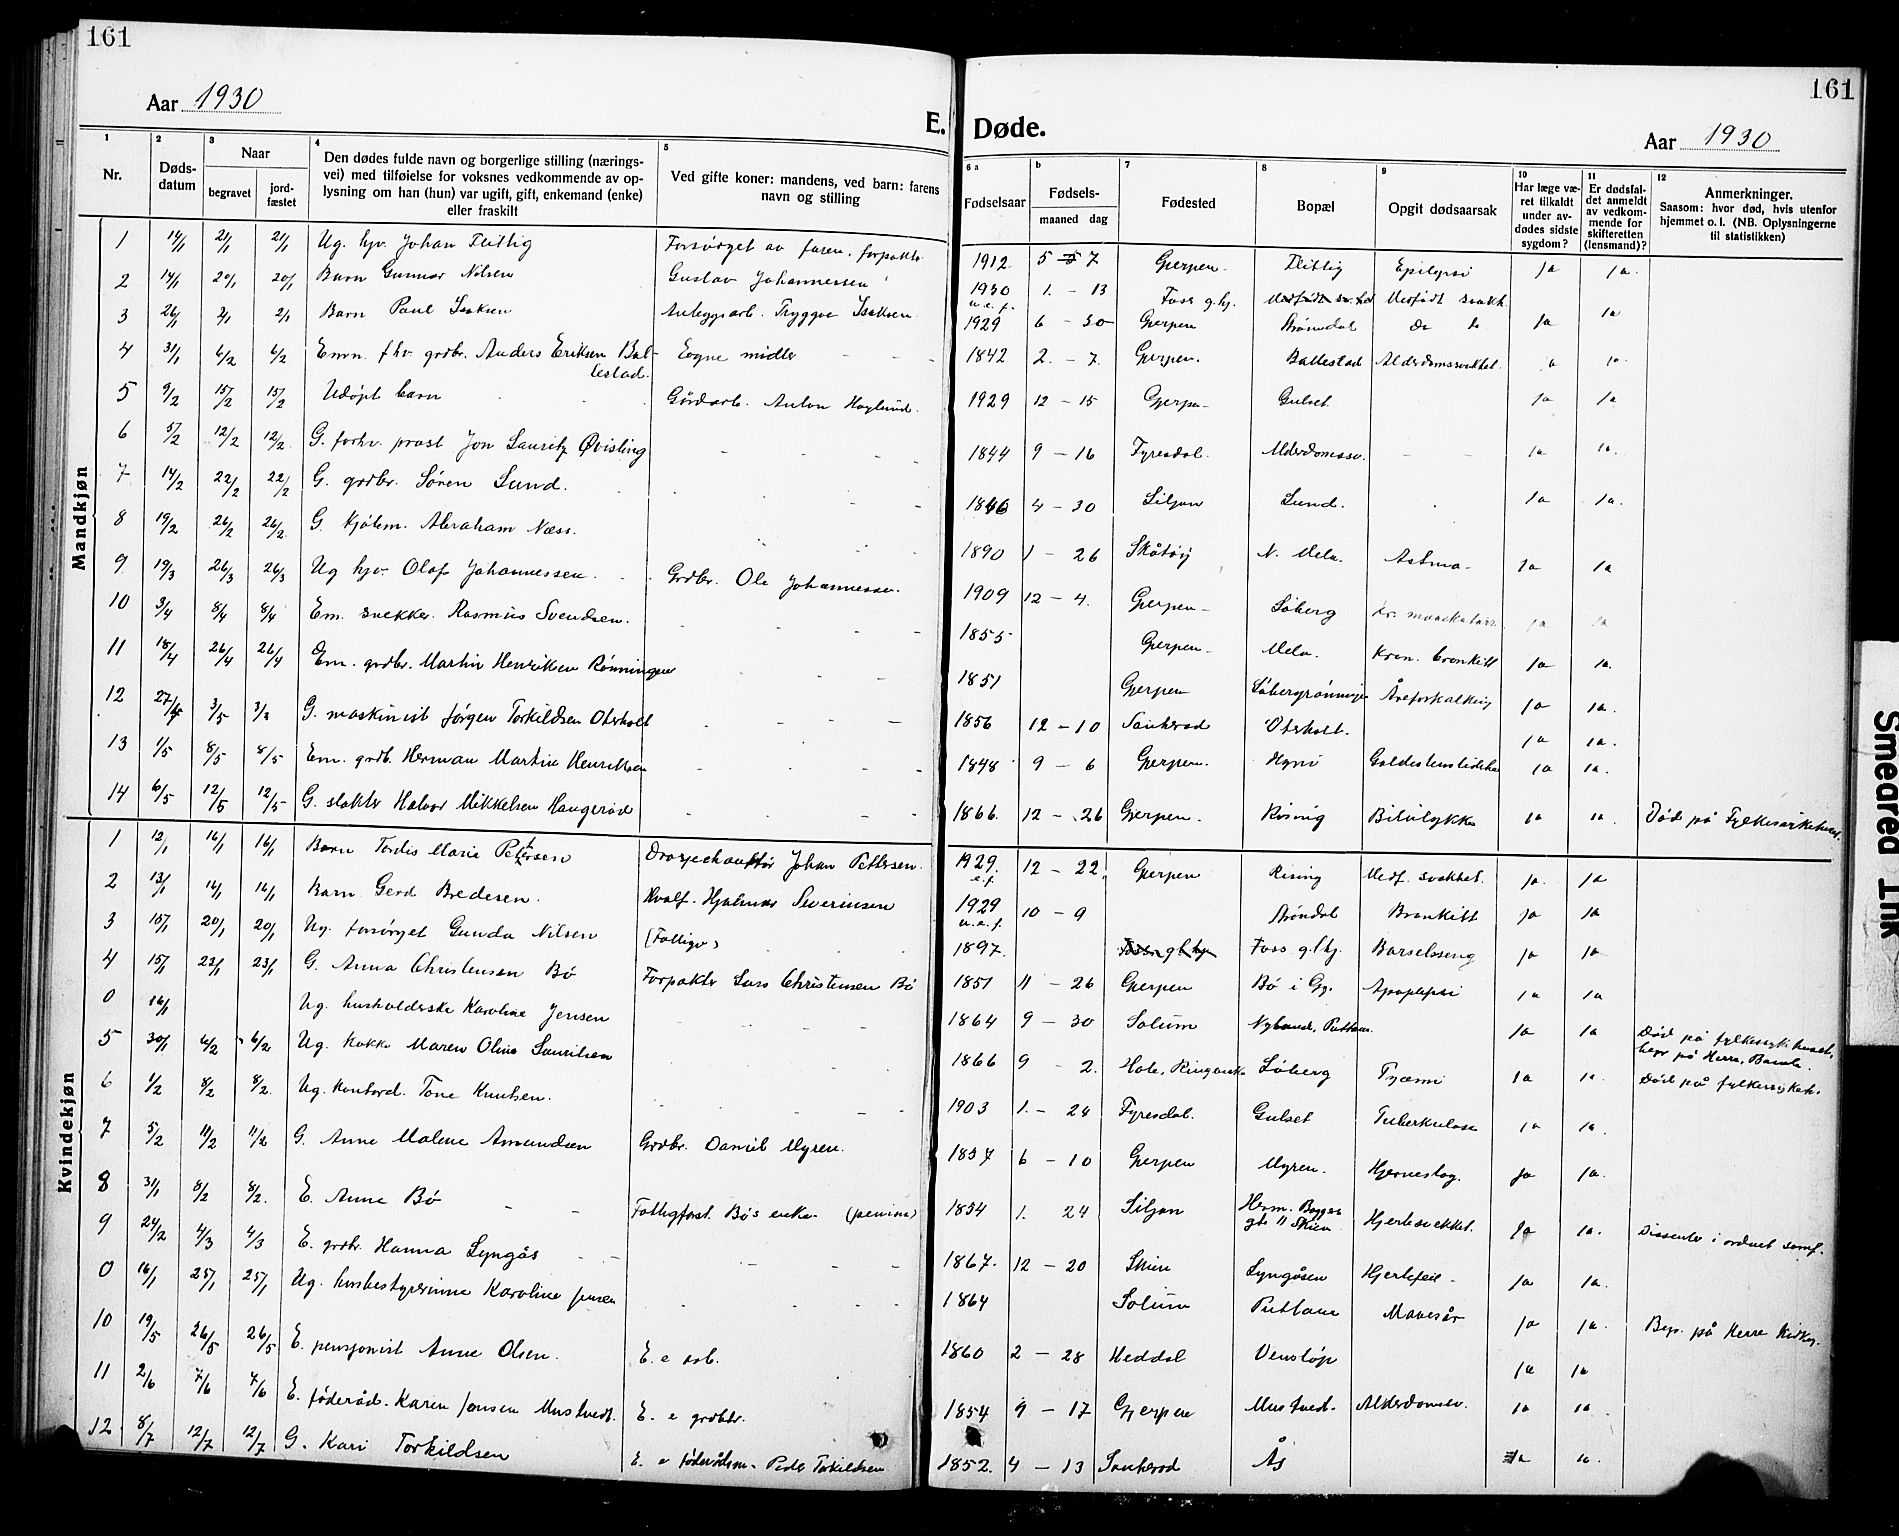 161
Aar 1930
E.
1
Nr.
2
Dødsdatum
3
Naar
begravet
jordfæstet
4
Den dødes fulde navn og borgerlige stilling (nærings-
vei) med tilføielse for voksnes vedkommende av op-
lysning om han (hun) var ugift, gift, enkemand (enke)
eller fraskilt
5
Ved gifte koner: mandens, ved barn: farens
navn og stilling
Mandkjøn
1 14/1 21/1 21/1 Ug. hjv. Johan Flittig Forsørget av faren, forpakter
2 14/1 20/1 20/1 Barn Gunnar Nilsen Gustav Johannessen
3 26/1 2/1 2/1 Barn Paul Isaksen Anleggsarb. Tryggve Isaksen
4 31/1 6/2 6/2 Emn. fhv. grdbr. Anders Eriksen Bal- Egne midler
lestad.
5 9/2 15/2 15/2 Udøpt barn Gårdarb. Anton Hoglund.
6 5/2 12/2 12/2 G. forhv. prost Jon Lauritz Qvisling
7 14/2 22/2 22/2 G. grdbr. Søren Lund.
8 19/2 26/2 26/2 G. Kjølem. Abraham Næss.
9 19/3 26/3 26/3 Ug hjv. Olaf Johannessen. Grdbr. Ole Johannessen.
10 3/4 8/4 8/4 Em. snekker. Rasmus Svendsen.
11 18/4 26/4 26/4 Em. grdbr. Martin Henriksen Rønningen
12 27/4 3/5 3/5 G. maskinist Jørgen Torkildsen Oterholt
13 1/5 8/5 8/5 Em. grdb. Herman Martin Henriksen
14 6/5 12/5 12/5 G. slakter Halvor Mikkelsen Haugerød
Kvindekjøn
1 12/1 16/1 16/1 Barn Tordis Marie Petersen Drosjechauffør Johan Pettersen.
2 13/1 16/1 16/1 Barn Gerd Bredesen. Kvalf. Hjalmar Severinsen
3 15/1 20/1 20/1 Ug. forsørget Gunda Nilsen (Fattigv)
4 15/1 22/1 23/1 G. Anna Christensen Bø Forpakter Lars Christensen Bø
0 16/1 Ug. husholderske Karoline Jensen
5 30/1 6/2 6/2 Ug. Kokke Maren Oline Lauritsen
6 1/2 8/2 8/2 Ug. Kontord. Tone Knutsen.
7 5/2 11/2 11/2 G. Anne Malene Amundsen Grdbr. Daniel Myren.
8 31/1 8/2 8/2. E. Anne Bø Fattigforst. Bøs enke (pension)
9 24/2 4/3 4/3 E. grdbr. Hanna Lyngås
0 16/1 25/1 25/1 Ug. husbestyrerinne Karoline Jensen
10 19/5 26/5 26/5 E. pensjonist Anne Olsen. E. e arb.
11 2/6 7/6 7/6 E. føderåd. Karen Jonsen Mustvedt. E. e grdbr.
12 8/7 12/7 12/7 G. Kari Torkildsen E. e føderådsm. Peder Torkildsen
161
Døde.
Aar 1930
6 a
Fødselsaar
b
Fødsels-
maaned dag
7
Fødested
8
Bopæl
9
Opgit dødsaarsak
10
Har læge væ-
ret tilkaldt
under av-
dødes sidste
sygdom?
11
Er dødsfal-
det anmeldt
av vedkom-
mende for
skifteretten
(lensmand)?
12
Anmerkninger.
Saasom: hvor død, hvis utenfor
hjemmet o. l. (NB. Oplysningerne
til statistikken)
1912. 5 7 Gjerpen. Flittig Epilepsi ja ja.
1930 u.e.f. 1. - 13 Foss g.hj. Medfødt svakh.
1929 6 - 30 Gjerpen Brøndal Do Do ja ja
1842 2. - 7. Gjerpen. Ballestad Alderdomssvakhet. ja ja.
1929 12 - 15 Gjerpen Gulset ja ja
1844 9 - 16 Fyresdal. Alderdomssv. ja ja.
1846 4 - 30 Siljan Lund. ja ja.
1890 1 - 26 Skåtøy N. Mela. Astma ja ja
1909 12 - 4. Gjerpen Løberg ja ja
1855 Gjerpen Mela. Kron. bronkitt ja ja.
1851 Gjerpen Løbergrønningen Åreforkalkning ja ja.
1856 12 - 10 Sauherad Oterholt. ja ja.
1848 9 - 6 Gjerpen. Hyni Galdestenslidelse ja ja.
1866. 12 - 26 Gjerpen. Rising Bilulykke ja ja. Død på Fylkessykehuset.
1929. e.f. 12 - 22. Gjerpen Rising Medf. svakhet. ja. ja
1929 u.e.f. 10 - 9 Brøndal Bronkitt ja ja
1897. Foss g.lhj. Barselsseng ja ja
1851 11 - 26 Gjerpen Bø i Gj. Apoplepsi ja ja
1864 9 - 30 Solum Nyland, Puttane. ja ja Død på fylkessykehuset,
begr. på Herre, Bamle.
1866 9 - 2. Hole, Ringerike Løberg Pyæmi ja ja. Død på fylkessykeh.
1903 1. - 24 Fyresdal. Gulset Tuberkulose ja ja.
1857 6 - 10 Gjerpen Myren. Hjerneslag. ja ja.
1854 1. 24 Siljan Herm. Bagges
gt. 11 Skien Hjertesvekket. ja ja. Dissenter i ordnet samf.
1867. 12 - 20 Skien Lyngåsen Hjertefeil ja ja.
1864 Solum Puttane Mavesår ja ja. Begr. på Herre kirkeg.
1860 2 - 28 Heddal Venstøp ja ja
1854 9 - 17 Gjerpen Mustved. Alderdomssv. ja ja.
1852. 4 - 13 Sauherad Ås ja ja.
Smeared Ink